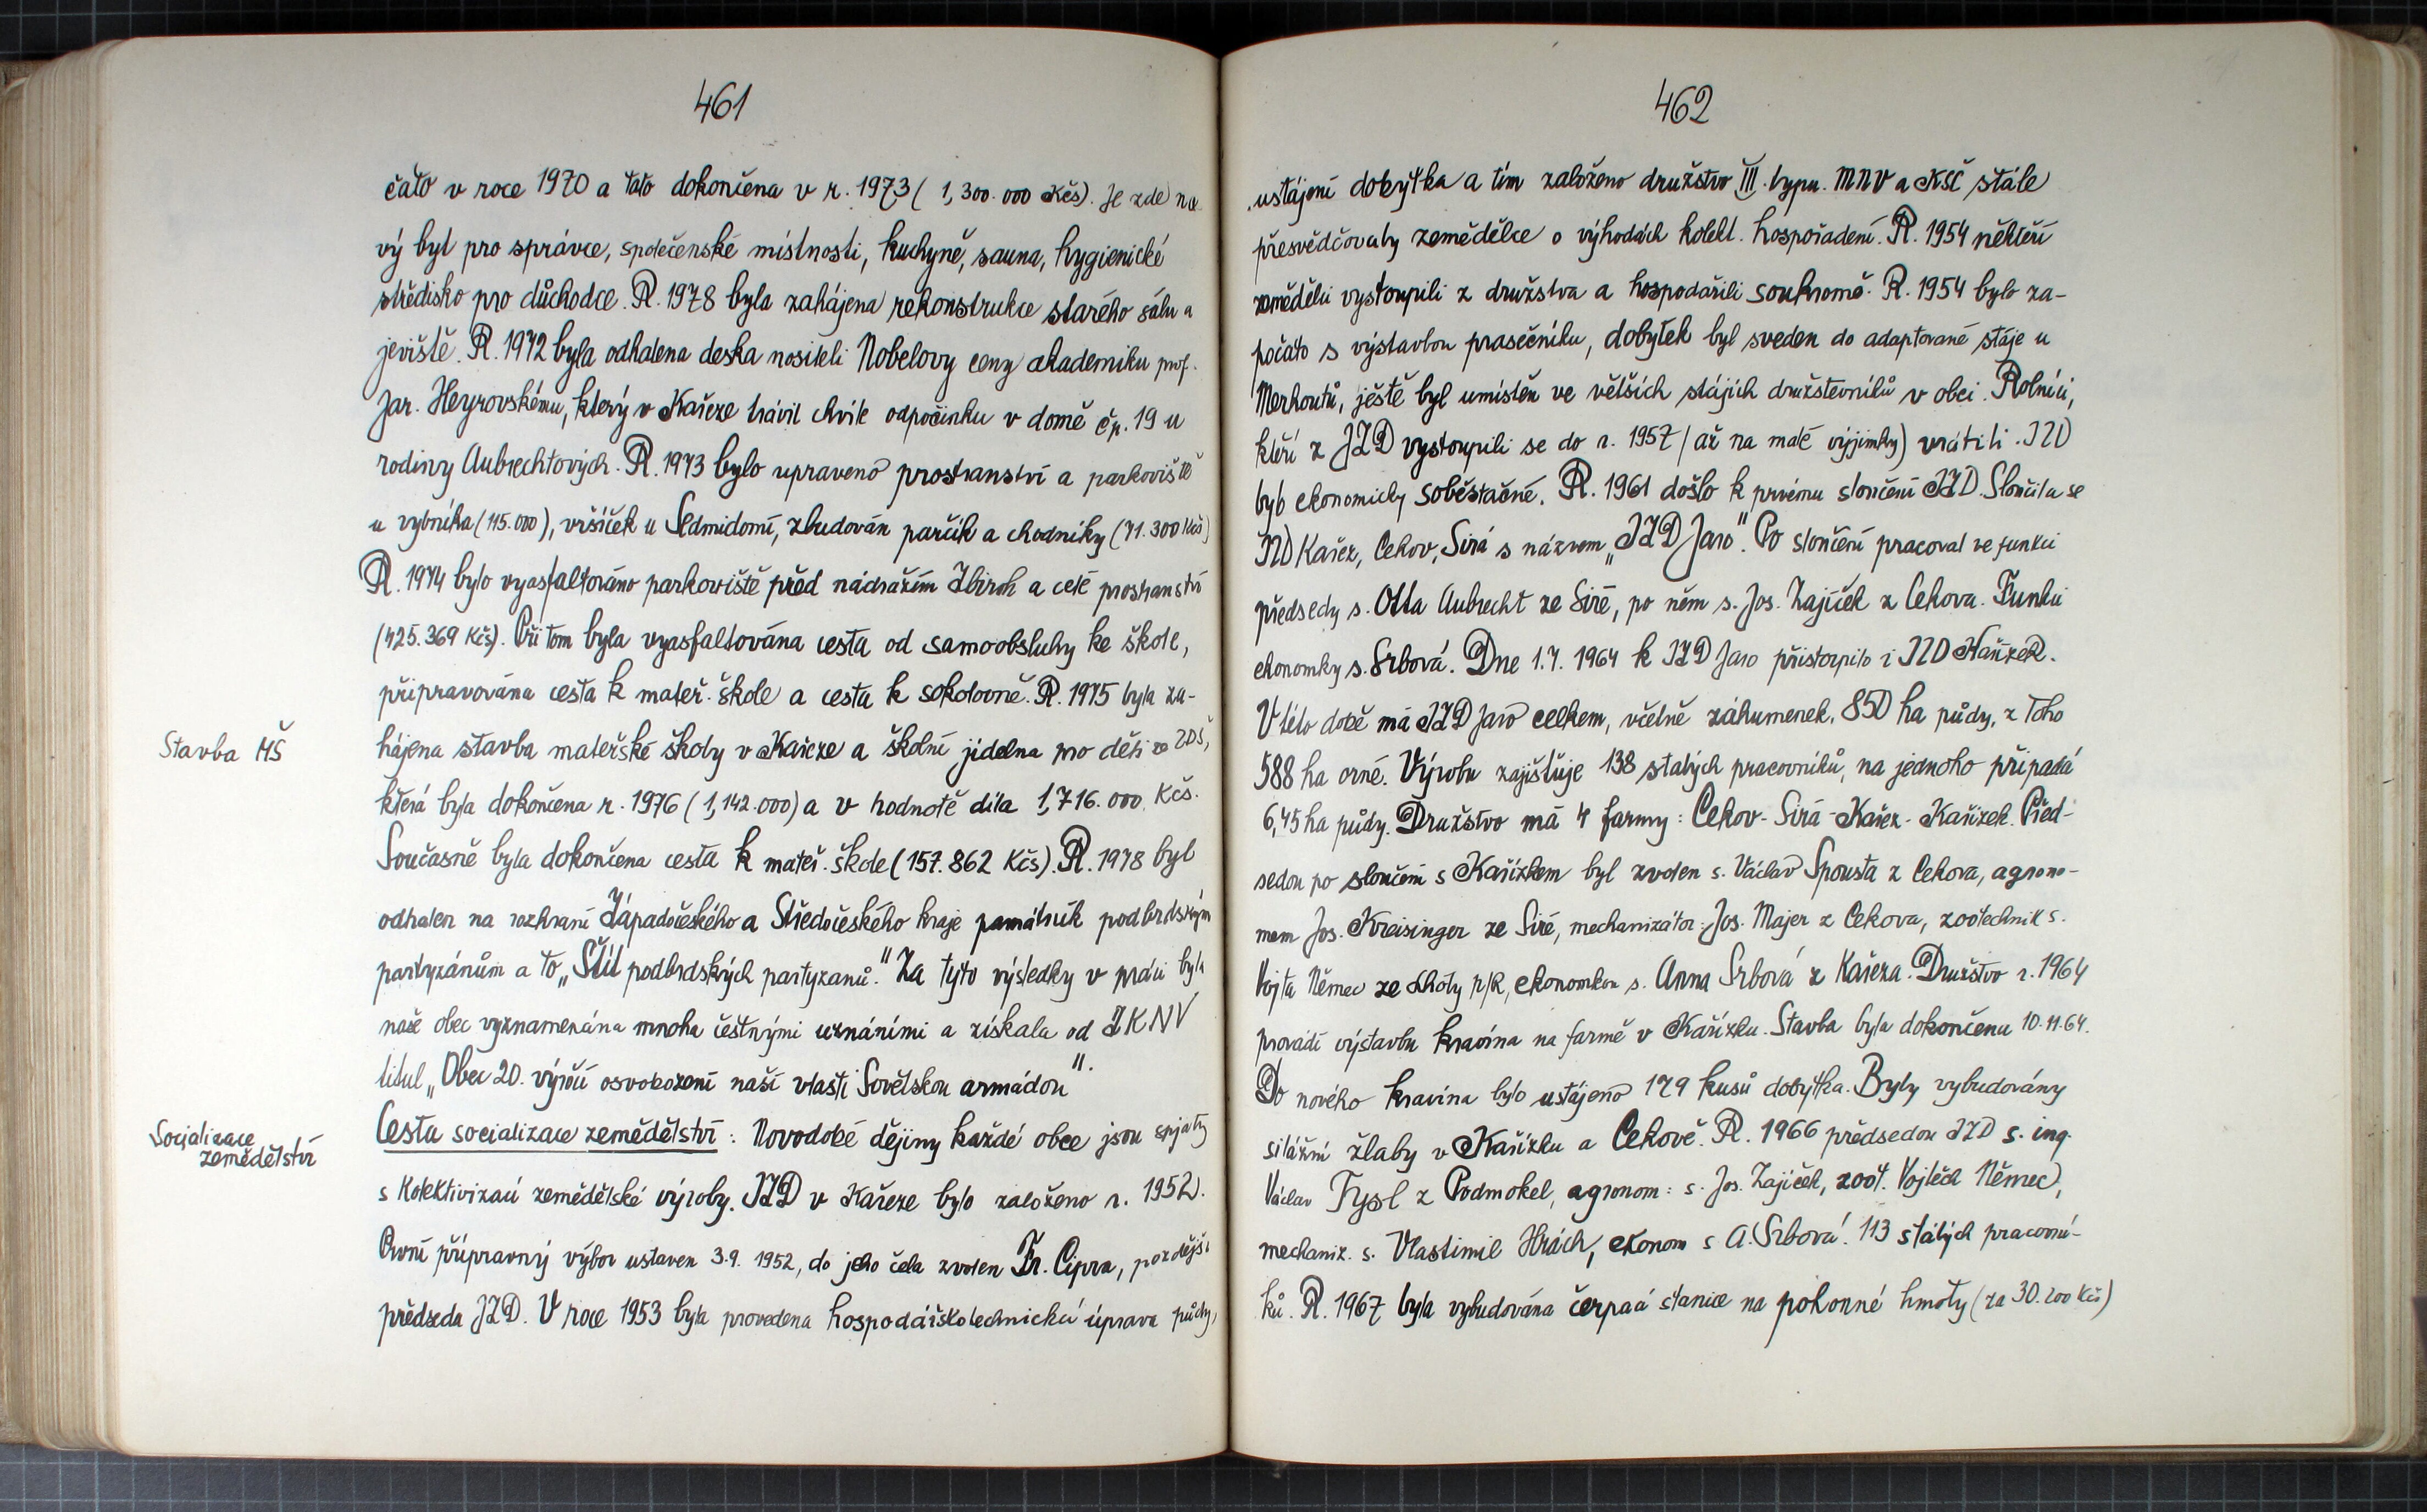 461
čato v roce 1970 a tato dokončena v r. 1973 ( 1,300.000 Kčs). Je zde no-
vý byt pro správce, společenské místnosti, kuchyně, sauna, hygienické
středisko pro důchodce. R. 1978 byla zahájena rekonstrukce starého sálu a
jeviště. R. 1972 byla odhalena deska nositeli Nobelovy ceny akademiku prof.
Jar. Heyrovskému, který v Kařeze trávil chvíle odpočinku v domě čp. 19 u
rodiny Aubrechtových. R. 1973 bylo upraveno prostranství a parkoviště
u rybníka (115.000), vršíček u Sedmidomí, zbudován parčík a chodníky (71.300 Kčs)
R. 1974 bylo vyasfaltováno parkoviště před nádražím Zbiroh a celé prostranství
(425.369 Kčs). Při tom byla vyasfaltována cesta od samoobsluhy ke škole,
připravována cesta k mateř. škole a cesta k sokolovně. R. 1975 byla za-
Stavba MŠ
hájena stavba mateřské školy v Kařeze a školní jídelna pro děti ze ZDŠ,
která byla dokončena r. 1976 ( 1,142.000) a v hodnotě díla 1,716.000 Kčs.
Současně byla dokončena cesta k mateř. škole (157.862 Kčs). R. 1978 byl
odhalen na rozhraní Západočeského a Středočeského kraje památník podbrdským
partyzánům a to „Štít podbrdských partyzanů." Za tyto výsledky v práci byla
naše obec vyznamenána mnoha čestnými uznáními a získala od ZKNV
titul „Obec 20. výročí osvobození naší vlasti Sovětskou armádou".
Socjalizace
zemědělství
Cesta socializace zemědělství : Novodobé dějiny každé obce jsou spjaty
s kolektivizací zemědělské výroby. JZD v Kařeze bylo založeno r. 1952.
První přípravný výbor ustaven 3.9. 1952, do jeho čela zvolen Fr. Cipra, pozdější
předseda JZD. V roce 1953 byla provedena hospodářskotechnická úprava půdy,
462
ustájení dobytka a tím založeno družstvo III. typu. MNV a KSČ stále
přesvědčovaly zemědělce o výhodách kolekt. hospořadení. R. 1954 někteří
zemědělci vystoupili z družstva a hospodařili soukromě. R. 1954 bylo za-
počato s výstavbou prasečníku, dobytek byl sveden do adaptované stáje u
Merhoutů, ještě byl umístěn ve větších stájích družstevníků v obci. Rolníci,
kteří z JZD vystoupili se do r. 1957 (až na malé výjimky) vrátili. JZD
bylo ekonomicky soběstačné. R. 1961 došlo k prvému sloučení JZD. Sloučila se
JZD Kařez, Cekov, Sirá s názvem „JZD Jaro". Po sloučení pracoval ve funkci
předsedy s. Otta Aubrecht ze Siré, po něm s. Jos. Zajíček z Cekova. Funkci
ekonomky s. Srbová. Dne 1.7. 1964 k JZD Jaro přistoupilo i JZD Kařízek.
V této době má JZD Jaro celkem, včetně záhumenek, 850 ha půdy, z toho
588 ha orné. Výrobu zajišťuje 138 stalých pracovníků, na jednoho připadá
6,45 ha půdy. Družstvo má 4 farmy : Cekov - Sirá - Kařez - Kařízek. Před-
sedou po sloučení s Kařízkem byl zvolen s. Václav Spousta z Cekova, agrono-
mem Jos. Kreisinger ze Siré, mechanizátor : Jos. Majer z Cekova, zootechnik s.
Vojta Němec ze Lhoty p/R, ekonomkou s. Anna Srbová z Kařeza. Družstvo r. 1964
provádí výstavbu kravína na farmě v Kařízku. Stavba byla dokončena 10.11.64.
Do nového kravína bylo ustájeno 179 kusů dobytka. Byly vybudovány
silážní žlaby v Kařízku a Cekově. R. 1966 předsedou JZD s. ing.
Václav Fysl z Podmokel, agronom : s. Jos. Zajíček, zoot. Vojtěch Němec,
mechaniz. s. Vlastimil Hrách, ekonom s A. Srbová. 113 stálých pracovní-
ků. R. 1967 byla vybudována čerpaá stanice na pohonné hmoty (za 30.200 Kčs)